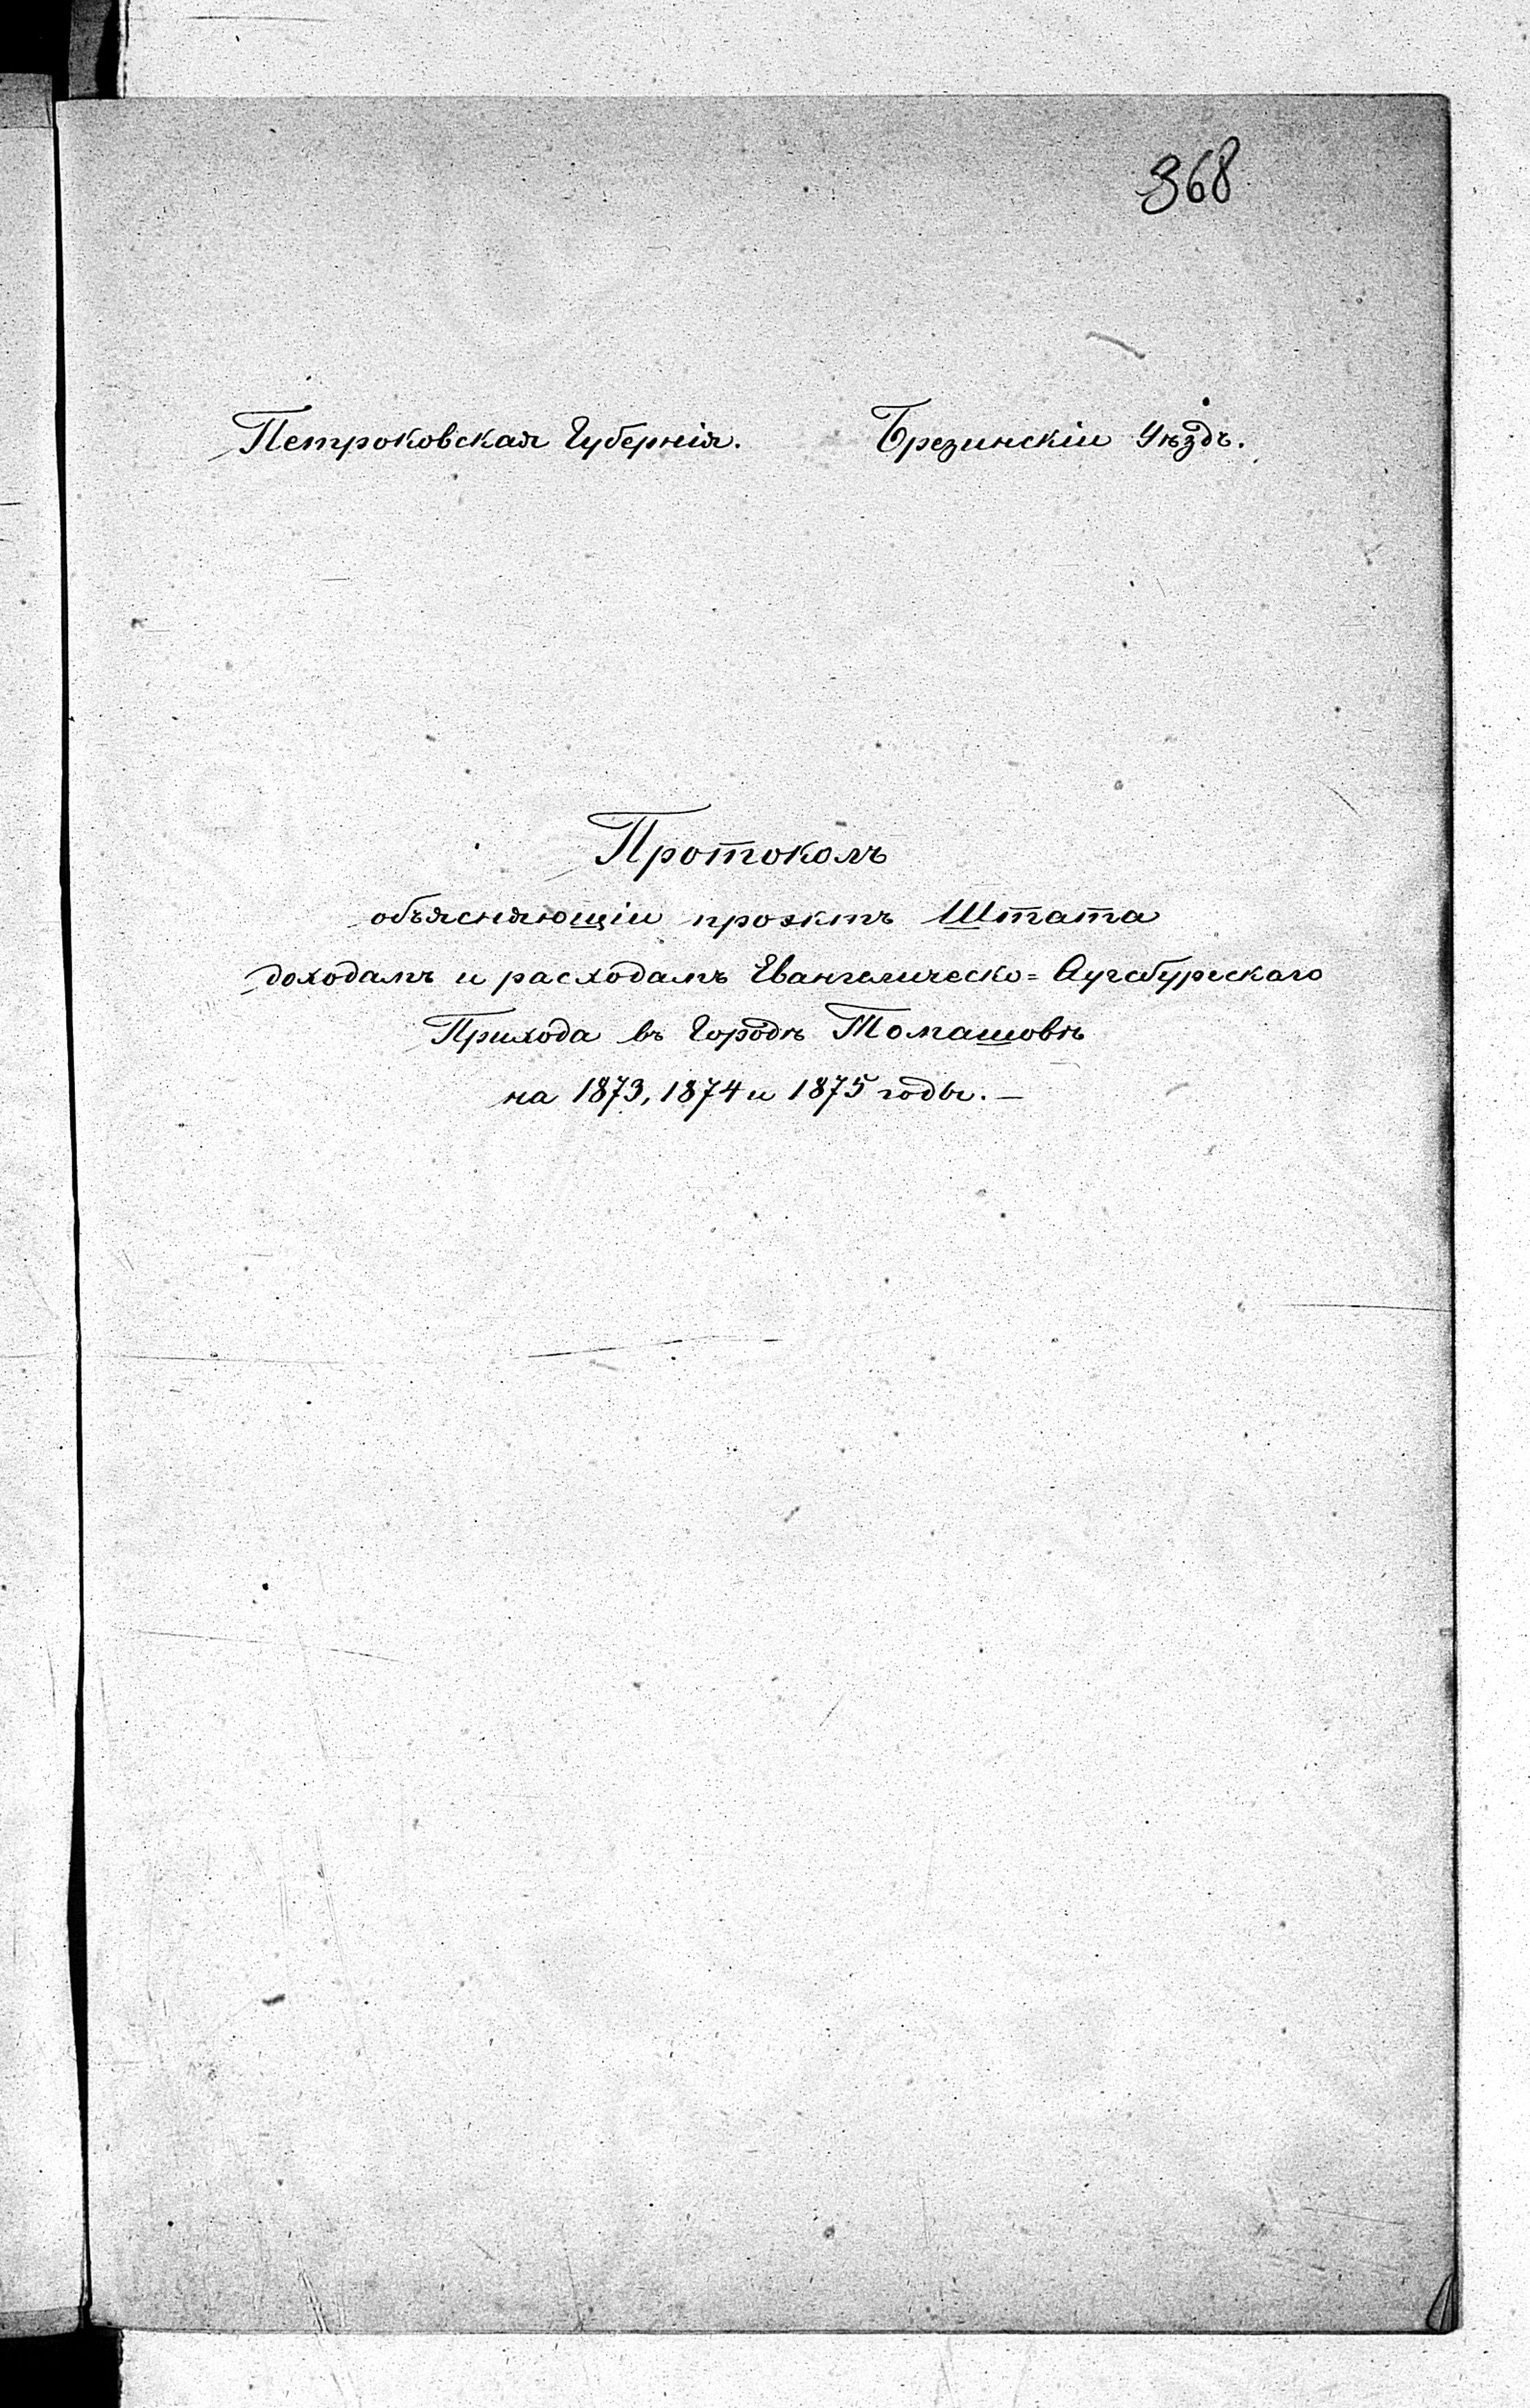 368
Петроковская Губернія. Брезинскіи Уѣздъ.
Протоколъ
объясняющіи проэктъ Штата
доходамъ и расходамъ Евангелическо= Аугсбургскаго
Прихода въ Городѣ Томашовѣ
на 1873, 1874 и 1875 годы. —